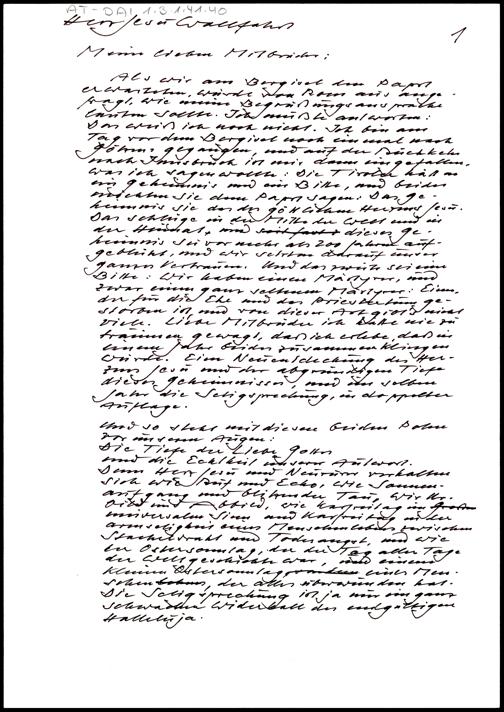 AT-DAI, 1.3.1.41.40
Herz Jesu Wallfahrt
1
Meine lieben Mitbrüder;
Als wir am Bergisel den Papst
erwarteten, wurde von Rom aus ange-
fragt, wie meine Begrüßungsansprache
lauten sollte. Ich mußte antworten:
Das weiß ich noch nicht. Ich bin am
Tag vor dem Bergisel noch einmal nach
Götzens gegangen und auf der Rückkehr
nach Innsbruck ist mir dann eingefallen,
was ich sagen wollte: Die Tiroler hätten
ein Geheimnis und eine Bitte, und beides
möchten sie dem Papst sagen: Das Ge-
heimnis sei das des göttlichen Herzens Jesu.
Das schlüge in der Mitte der Welt und in
der Heimat, und dieses Ge-
heimnis sei vor mehr als 200 Jahren auf-
geblüht, und wir setzten darauf unser
ganzes Vertrauen. Und das zweite sei eine
Bitte: Wir haben einen Märtyrer, und
zwar einen ganz seltenen Märtyrer: Einen,
der für die Ehe und das Priestertum ge-
storben ist, und von dieser Art gibt es nicht
viele. Liebe Mitbrüder ich habe nie zu
träumen gewagt, daß ich erlebe, daß in
einem Jahr beides zusammenklingen
würde. Eine Neuentdeckung des Her-
zens Jesu und der abgründigen Tiefe
dieses Geheimnisses, und im selben
Jahr die Seligsprechung, in doppelter
Auflage.
Und so steht mit diesen beiden Polen
vor unseren Augen:
Die Tiefe der Liebe Gottes
und die Echtheit unserer Antwort.
Denn Herz Jesu und Neururer verhalten
sich wie Ruf und Echo, wie Sonnen-
aufgang und blitzender Tau, wie Ur-
bild und Abbild, wie Karfreitag im Großen
universalen Sinn und Karfreitag in der
armseligkeit eines Menschenlebens zwischen
Stacheldraht und Todesangst, und wie
der Ostersonntag, der der Tag aller Tage
der Weltgeschichte war, und einem
kleinen Ostersonntag eines Men-
schen, der alles überwunden hat.
Die Seligsprechung ist ja nur ein ganz
schwacher Widerhall des endgültigen
Halleluja.